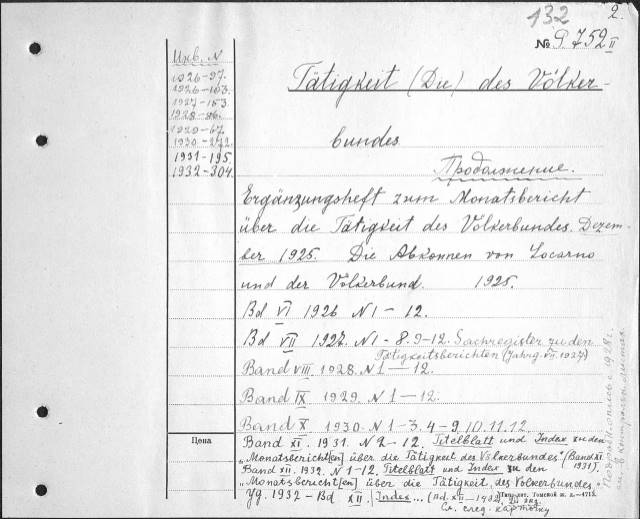 132
2.
№ P. 752 II
Инв. N
1926-97.
1926-153
1927-153
1928-86.
1929-67.
1930-272.
1931-195.
1932-304
Tätigkeit (Die) des Völker-
bundes
Продолжение.
Ergänzungsheft zum Monatsbericht
über die Tätigkeit des Völkerbundes. Dezem-
ber 1925. Die Abkommen von Locarno
und der Völkerbund. 1925.
Bd VI 1926 N 1-12.
Bd VII 1927. N 1-8. 9-12. Sachregister zu den
Tätigkeitsberichten (Jahrg. VII. 1927)
Band VIII. 1928. N 1-12.
Band IX 1929. N 1-12.
Band X 1930. N 1-3. 4-9. 10. 11. 12.
Цена
Band XI. 1931. N 2-12. Titelblatt und Index zu den
„Monatsbericht[en] über die Tätigkeit des Völkerbundes" (Band XI
1931).
Band XII. 1932. N 1-12. Titelblatt und Index zu den
„Monatsbericht[en] über die Tätigkeit des Völkerbundes."
Jg. 1932-Bd XII. Index... (Bd. XII-1932).
Тип.-лит. Томской ж. д.-4713.
См. след. карточку